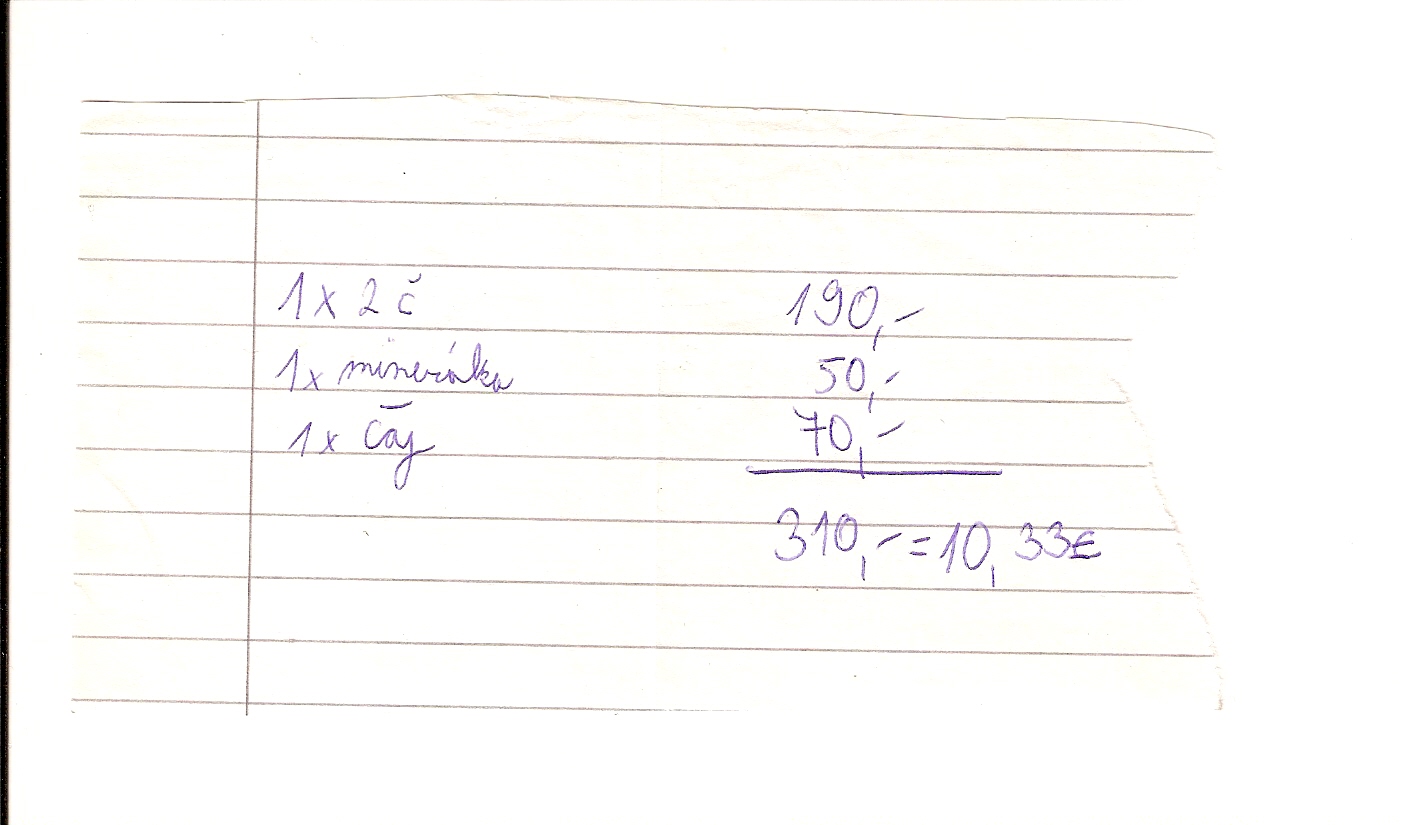 1x 2 č 190,-
1x minerálka 50,-
1x čaj 70,-
310,- = 10,33€